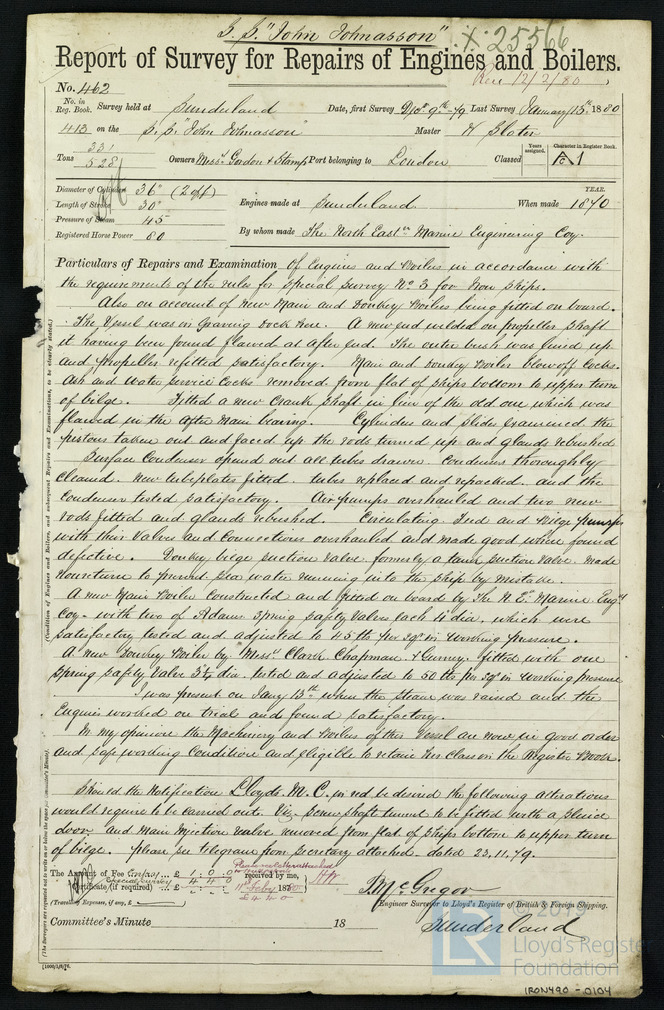 S.S. "John Johnasson"
X. 25566
Report of Survey for Repairs of Engines and Boilers.
Rec 12/2/80
No. 462
No. in Reg. Book. Survey held at Sunderland Date, first Survey Dec 9th-79 Last Survey January 13th 1880
413 on the S.S. "John Johnasson" Master H Slater
Tons 331
528 Owners Messrs Gordon & Stamp Port belonging to London Classed Years assigned. Character in Register Book. A1
Diameter of Cylinder 36" (2 off)
Length of Stroke 30"
Pressure of Steam 45
Registered Horse Power 80
Engines made at Sunderland When made YEAR. 1870
By whom made The North Eastn Marine Engineering Coy.
Particulars of Repairs and Examination Of Engines and Boilers in accordance with
the requirements of the rules for Special Survey No 3 for Iron Ships.
Also on account of New Main and Donkey Boilers being fitted on board.
The Vessel was in Graving Dock here. A new end welded on propeller shaft
it having been found flawed at after end. The outer bush was lined up
and propeller refitted satisfactory. Main and Donkey Boiler blow off cocks.
Ash and Water Service Cocks removed from flat of ships bottom to upper turn
of bilge. Fitted a new Crank Shaft in lieu of the old one which was
flawed in the After Main bearing. Cylinders and Slides examined the
pistons taken out and faced up the rods turned up and glands rebushed
Surface Condenser opened out all tubes drawn condenser thoroughly
cleaned. New tubeplates fitted. tubes replaced and repacked. and the
Condenser tested satisfactory. Air pumps overhauled and two new
rods fitted and glands rebushed. Circulating feed and Bilge pumps
with their valves and connections overhauled and made good when found
defective. Donkey bilge suction valve formerly a tank suction valve. made
Nonreturn to prevent sea water running into the ship by mistake.
A new Main Boiler Constructed and fitted on board by The N.E. Marine Engg
Coy. with two of Adams spring safety valves each 4 dia. which were
satisfactory tested and adjusted to 45 lb per sqr in working pressure.
A new Donkey Boiler by "Messrs Clark Chapman & Gurney. fitted with one
spring safety Valve 3½ dia. tested and adjusted to 50 lb per sqr in working pressure
I was present on Jany 13th when the Steam was raised and the
Engines worked on trial and found satisfactory.
In my opinion the Machinery and Boilers of this Vessel are now in good order
and safe working Condition and eligible to retain her Class in the Register Book.
Should the Notification Lloyds M.C. in red be desired the following alterations
would require to be carried out. Viz. Screw shaft tunnel to be fitted with a Sluice
door and Main Injection Valve removed from flat of Ships bottom to upper turn
of bilge. please see telegram from Secretary attached. dated 23.11.79.
The Amount of Fee £ 1. 0. 0 received by me,
Special Survey £ 4 4 0
Certificate (if required) .. £
(Travelling Expenses, if any, £ )
£ 4 4 0
R McGregor
Engineer Surveyor to Lloyd's Register of British & Foreign Shipping.
Sunderland
Committee's Minute 18
(Condition of Engines and Boilers, and subsequent Repairs and Examinations, to be clearly stated.)
(The Surveyors are requested not to write on or below the space for Committee's Minute).
© 2019
LR
Lloyd's Register
Foundation
IRON490-0104